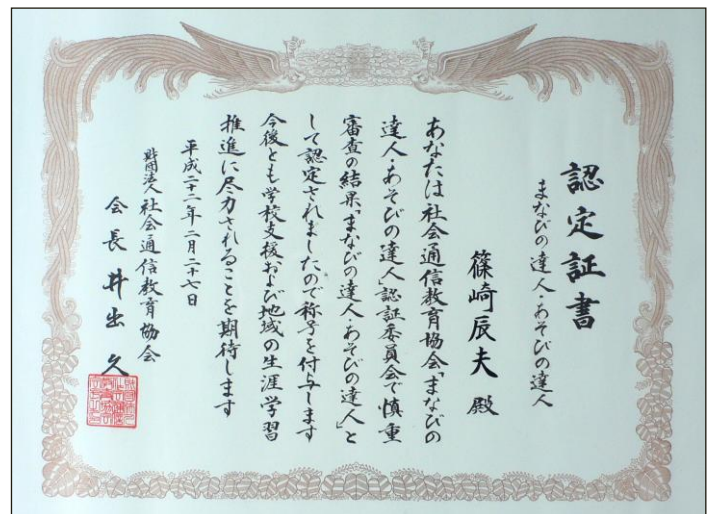 認定証書
まなびの達人・あそびの達人
篠崎辰夫 殿
あなたは社会通信教育協会「まなびの
達人・あそびの達人」認証委員会で慎重
審査の結果「まなびの達人・あそびの達人」と
して認定されましたので称号を付与します
今後とも学校支援および地域の生涯学習
推進に尽力されることを期待します
平成二十二年二月二十七日
財団法人 社会通信教育協会
会長 井出 久